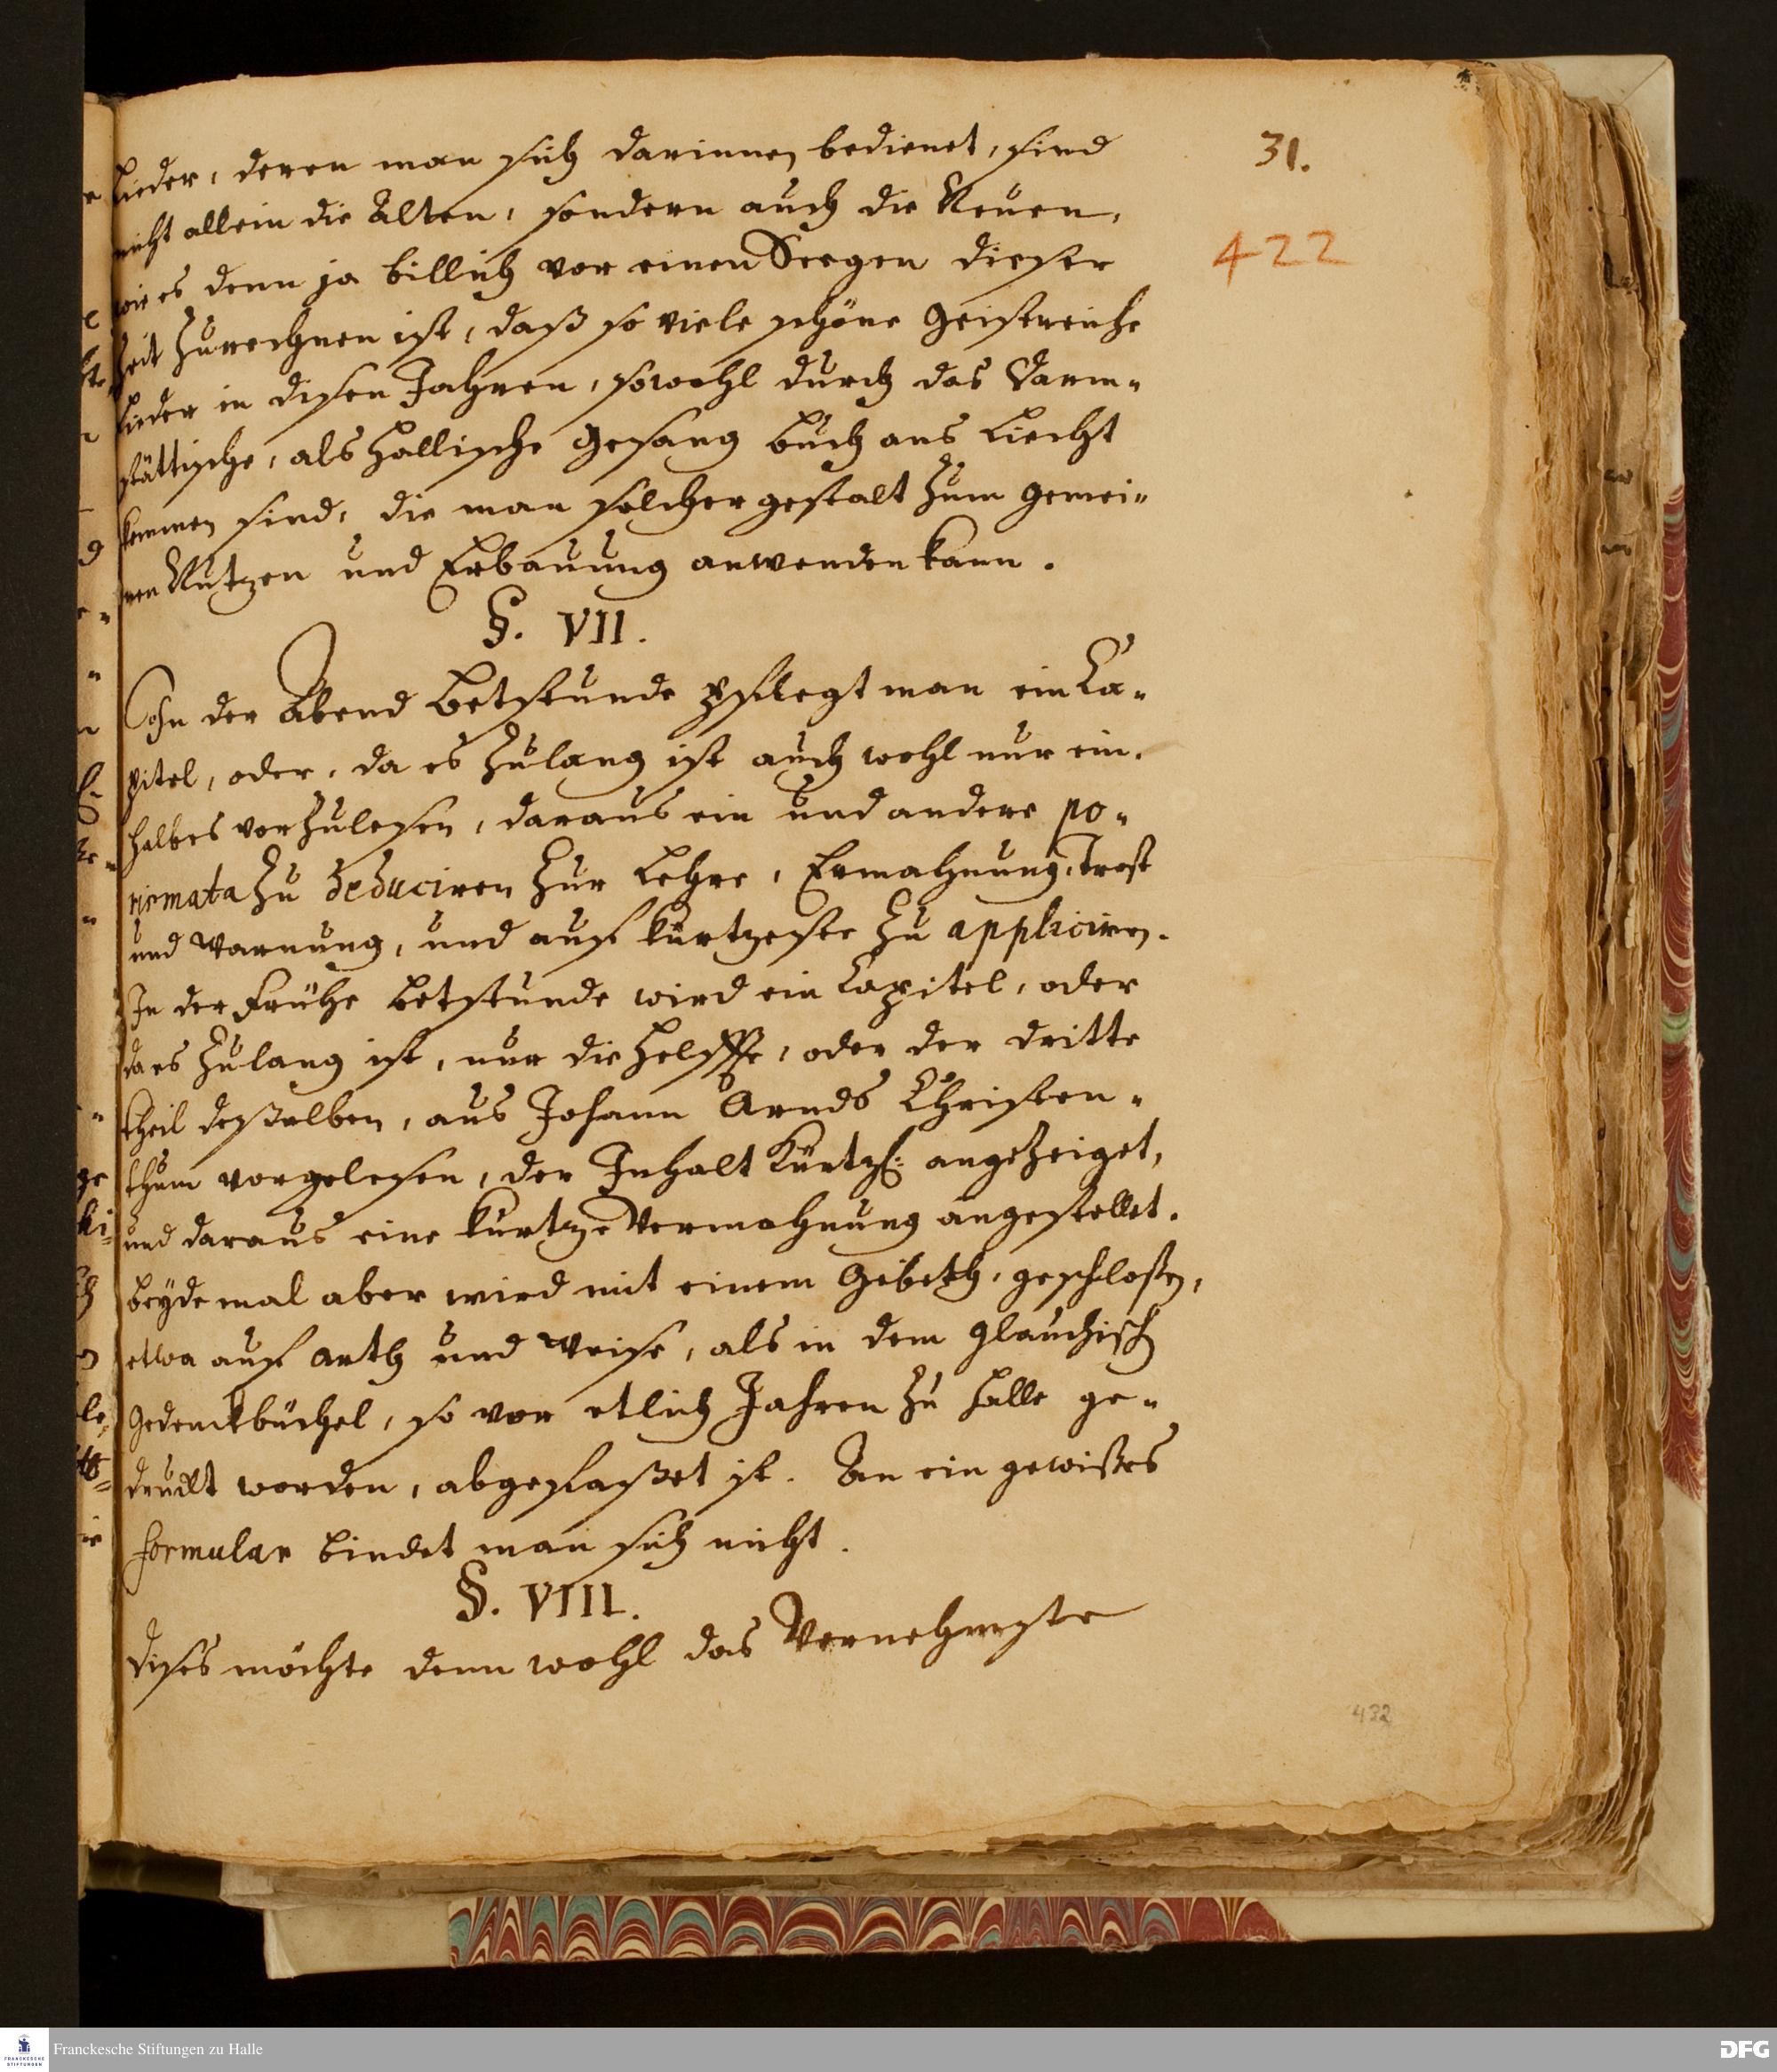 31.
422
Lieder, deren man sich darinnen bedienet, sind
nicht allein die Alten, sondern auch die Neuen,
wie es denn ja billich vor einen Seegen dieser
Zeit zurechnen ist, daß so viele schöne Geistreiche
Lieder in disen Jahren, sowohl durch das Darm-
stättische, als Hallische Gesang buch ans Liecht
kommen sind, die man solcher gestalt zum gemei-
nen Nutzen und Erbauung anwenden kann.
§. VII.
In der Abend Betstunde pflegt man ein Ca-
pitel, oder, da es zulang ist auch wohl nur ein
halbes vorzulesen, daraus ein und andere po-
rismata zu deduciren zur Lehre, Ermahnung, Trost
und Warnung, und aufs kürtzeste zu appliciren.
In der Frühe Betstunde wird ein Capitel, oder
da es zulang ist, nur die Helffte, oder der dritte
theil deßelben, aus Johann Arnds Christen-
thum vorgelesen, der Inhalt Kürtzl: angezeiget,
und daraus eine kurtze Vermahnung angestellet.
beyde mal aber wird mit einem Gebeth, geschloßen,
etwa auf arth und Weise, als in dem Glauchisch
Gedenckbüchel, so vor etlich Jahren zu Halle ge-
druckt worden, abgefaßet ist. An ein gewißes
formular bindet man sich nicht.
§. VIII.
Dises möchte denn wohl das Vornehmste
432
Franckesche Stiftungen zu Halle
FRANCKESCHE
STIFTUNGEN
DFG